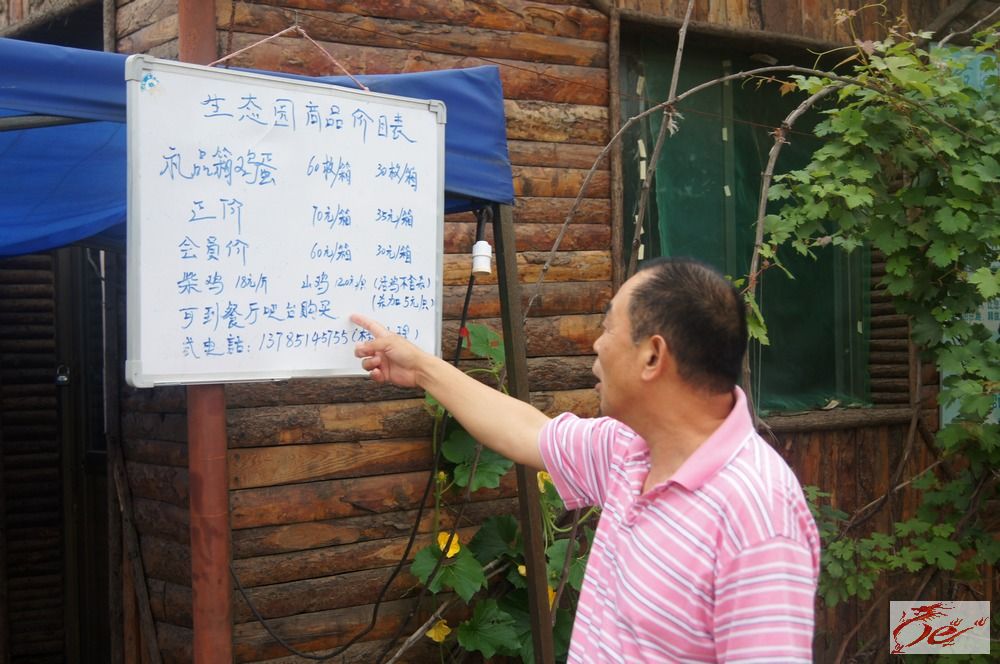 生态园商品价目表
礼品箱鸡蛋 60枚/箱 30枚/箱
正价 70元/箱 35元/箱
会员价 60元/箱 30元/箱
柴鸡 18元/斤 山鸡 120元/只 (活鸡不含杀)
(杀加工5元/只)
可到餐厅吧台购买
或电话:13785145755